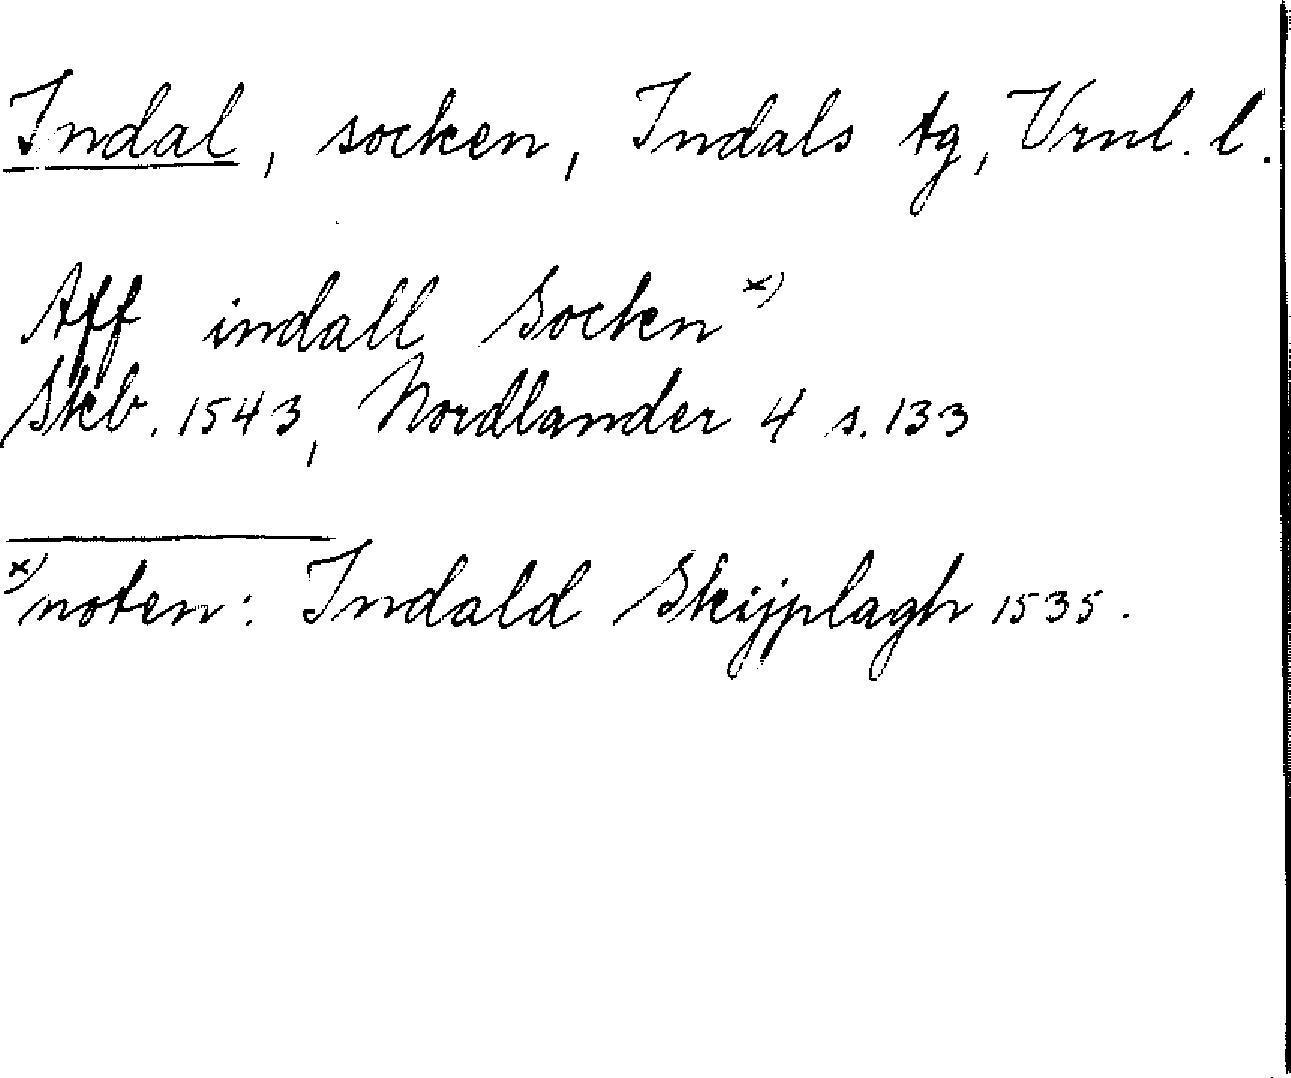 Indal, socken, Indals tg, Vrnl. l.
Aff indall Socken x)
Skb. 1543, Nordlander 4 s. 133
x) noten: Indald Skijplagh 1535.